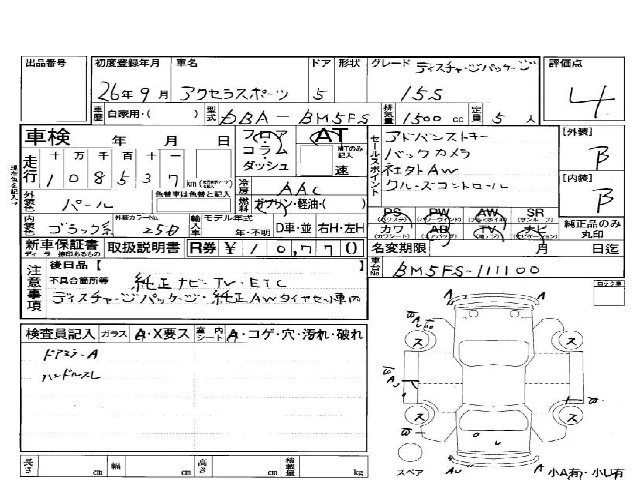 出品番号 初度登録年月 車名 ドア 形状 グレード 評価点
26年9月 アクセラスポーツ 5 ディスチャージパッケージ 15S 4
車歴 自家用・( ) 型式 DBA-BM5FS 排気量 1500 cc 定員 5 人
車検 年 月 日 フロア・コラム・ダッシュ AT 速
走行 十 万 千 百 十 一
108537 km
冷房 AAC
外装色 パール 色替車は色替と記入 燃料 ガソリン・軽油・( )
内装色 ブラック系 外装カラーNo. 25D 輸入車 モデル年式 年・不明 D車・並 右H・左H
セールスポイント
アドバンストキー
バックカメラ
社外AW
クルーズコントロール
【外装】 B
【内装】 B
PS PW AW SR
カワ AB TV ナビ
純正品のみ丸印
新車保証書 取扱説明書 R券 ¥10,770 名変期限 月 日迄
車台No. BM5FS-111100
注意事項 後日品【 】
不具合箇所等 純正ナビ・TV・ETC
ディスチャージパッケージ・純正AWタイヤセット車内
検査員記入 ガラス A・X要ス 室内シート A・コゲ・穴・汚れ・破れ
ドアミラーA
ハンドルスレ
長さ cm 幅 cm 高さ cm 積載量 kg
スペア 小A有・小U有